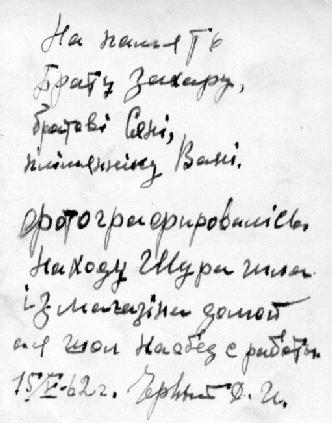 На память
Брату Захару,
братові Сені,
племянніку Вані.
Фотографировались
на ходу Шура шла
із магазіна домой
а я шол на обед с работы
15/V-62 г. Черный Ф. И.